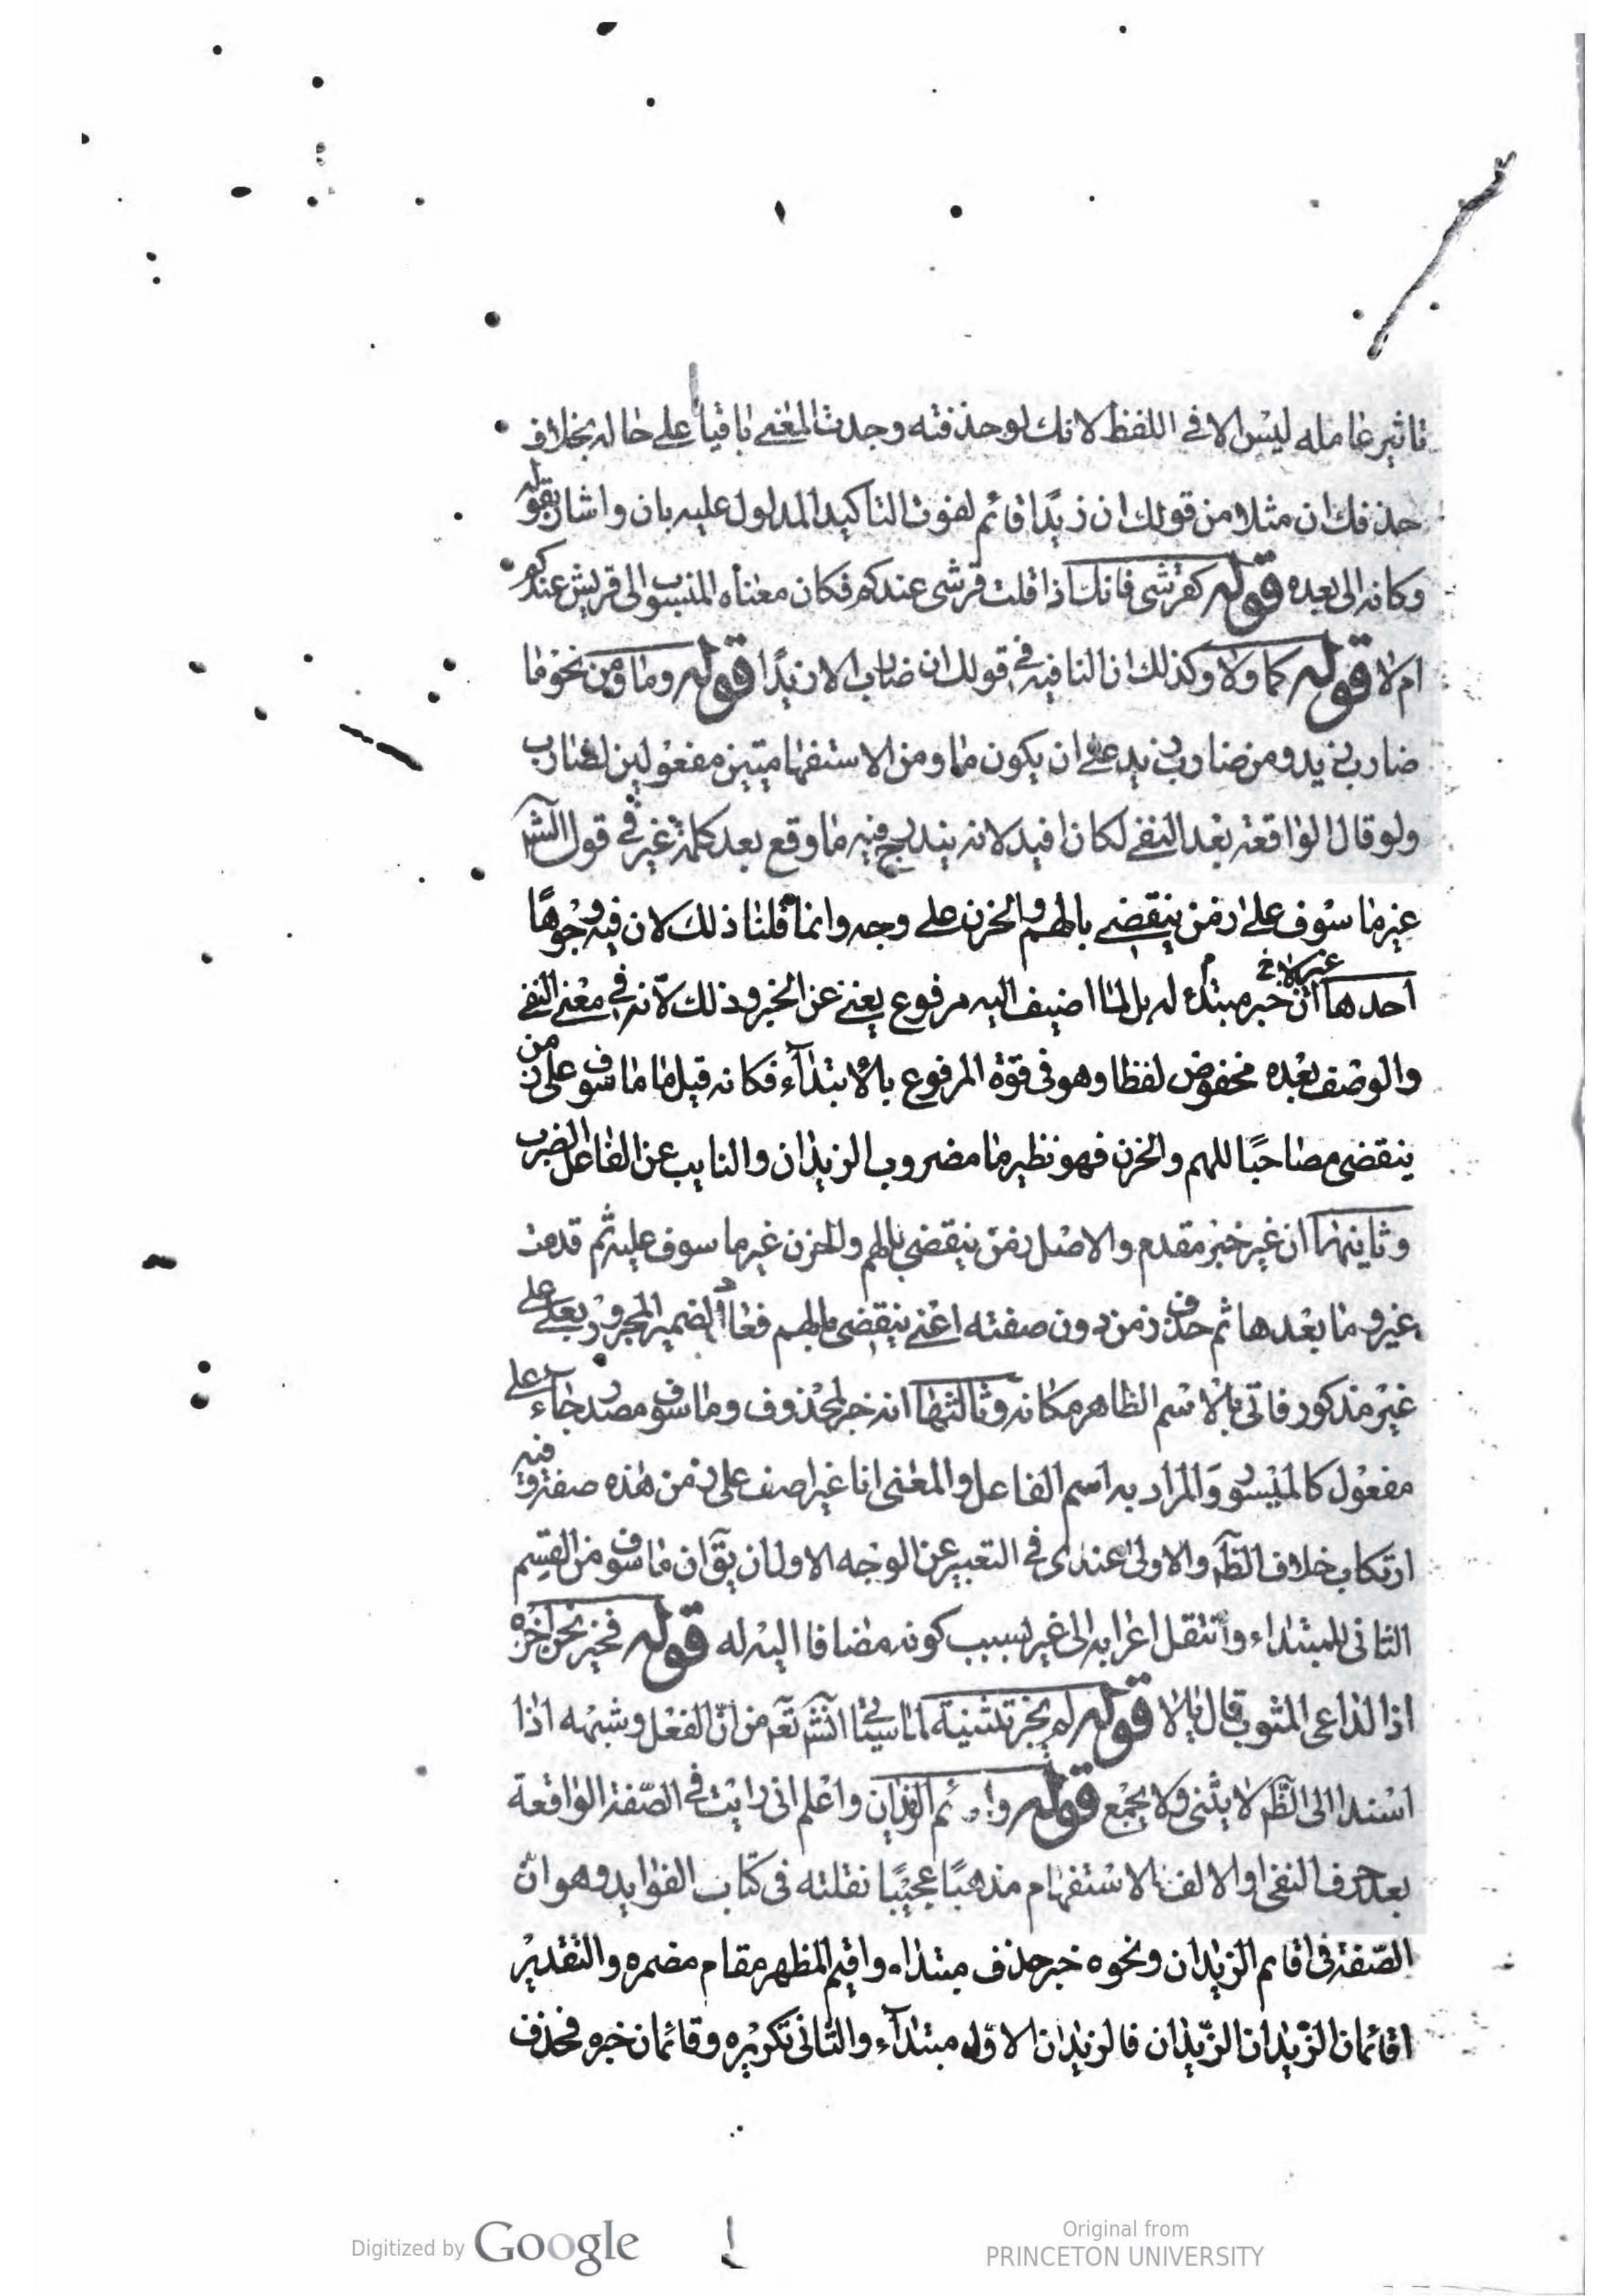 تاثير عامله ليس الا في اللفظ لانك لو حذفته وجدت المعنى باقيا على حاله بخلاف
حذفك ان مثلا من قولك ان زيدًا قائم لفوت التاكيد المدلول عليه بان واشار بقوله
وكانه الى بعده قوله كقرشى فانك اذا قلت قرشى عندكم فكان معناه المنسوب الى قريش عندكم
ام لا قوله كما ولا وكذلك ان النافيه في قولك ان ضارب الا زيدًا قوله وما ومن نحو ما
ضارب زيد ومن ضارب زيد على ان يكون ما ومن الاستفهاميتين مفعولين لضارب
ولو قال الواقعة بعد النفي لكان افيد لانه يندرج فيه ما وقع بعد كلمة غير في قول الش
غير ماسوف على زمن ينقضي بالهم والحزن على وجه وانما قلنا ذلك لان فيه وجوهًا
احدها ان غير لا خبر مبتدأ له بل لما اضيف اليه مرفوع يغني عن الخبر وذلك لانه في معنى النفي
والوصف بعده مخفوض لفظا وهو في قوة المرفوع بالابتدآء فكانه قيل ما ماسوف على زمن
ينقضي مصاحبًا للهم والحزن فهو نظير ما مضروب الزيدان والنايب عن الفاعل الضرب
وثانيها ان غير خبر مقدم والاصل زمن ينقضي بالهم والحزن غير ماسوف عليه ثم قدمت
غير وما بعدها ثم حذف زمن دون صفته اعني ينقضي بالهم فعاد الضمير المجرور بعلى على
غير مذكور فاتى بالاسم الظاهر مكانه وثالثها انه خبر لمحذوف وماسوف مصدر جاء على
مفعول كالميسور والمراد به اسم الفاعل والمعنى انا غير اسف على زمن هذه صفته وفيه
ارتكاب خلاف الظ والاولى عندى في التعبير عن الوجه الاول ان يق ان ماسوف من القسم
الثاني للمبتداء وانتقل اعرابه الى غير لسبب كونه مضافا اليه له قوله فخير نحن اخره
اذا الداعى المثوب قال يالا قوله لم يجز تثنية لما سيئا انش تع من ان الفعل وشبهه اذا
اسند الى الظ لا يثنى ولا يجمع قوله و ئم الزيدان واعلم انى رايت في الصفة الواقعة
بعد حرف النفى او الالف الاستفهام مذهبًا عجيبًا نقلته في كتاب الفوايد وهو ان
الصفة في اقايم الزيدان ونحوه خبر حذف مبتداه واقيم المظهر مقام مضمره والتقدير
اقائمان الزيدان الزيدان فالزيدان الاول مبتدآء والثانى تكريره وقائمان خبره فحذف
Digitized by Google
Original from
PRINCETON UNIVERSITY